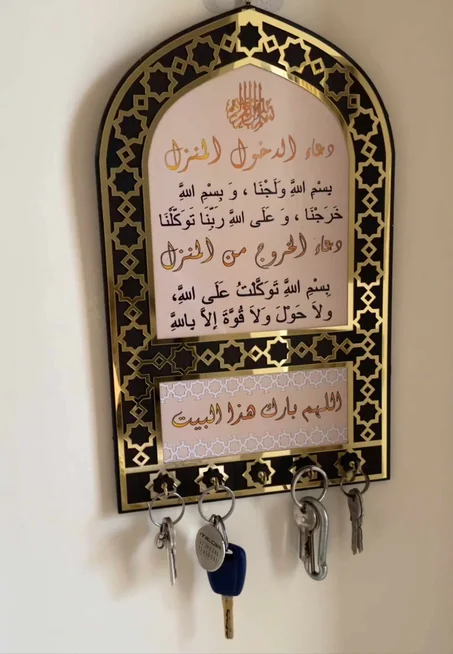 دعاء الدخول المنزل
بِسْمِ اللهِ وَلَجْنَا ، وَ بِسْمِ اللهِ
خَرَجْنَا ، وَ عَلَى اللهِ رَبِّنَا تَوَكَّلْنَا
دعاء الخروج من المنزل
بِسْمِ اللهِ تَوَكَّلْتُ عَلَى اللهِ،
ولاَ حَوْلَ وَلاَ قُوَّةَ إِلاَّ بِاللهِ
اللهم بارك هذا البيت